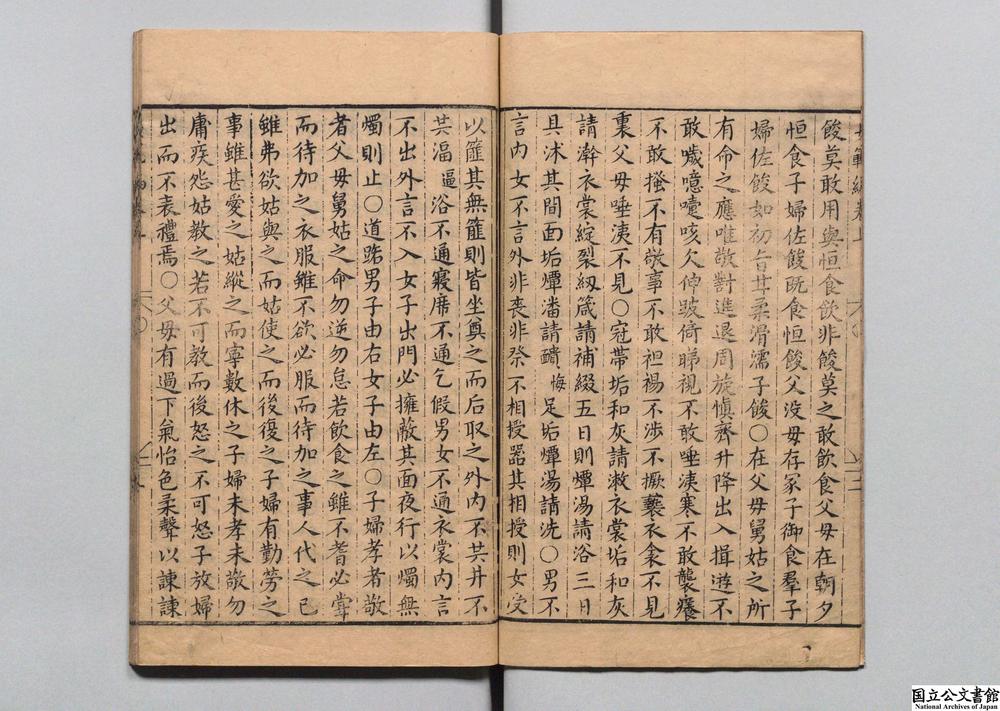 餕莫敢用與恒食飲非餕莫之敢飲食父母在朝夕
恒食子婦佐餕旣食恒餕父没母存冢子御食羣子
婦佐餕如初旨甘柔滑濡子餕○在父母舅姑之所
有命之應唯敬對進退周旋愼齊升降出入揖遊不
敢噦噫嚏咳欠伸跛倚睇視不敢唾洟寒不敢襲癢
不敢搔不有敬事不敢袒裼不涉不撅褻衣衾不見
裏父母唾洟不見○冠帶垢和灰請漱衣裳垢和灰
請澣衣裳綻裂紉箴請補綴五日則燂湯請浴三日
具沐其間面垢燂潘請靧 悔 足垢燂湯請洗○男不
言内女不言外非喪非祭不相授器其相授則女受
以篚其無篚則皆坐奠之而后取之外内不共井不
共湢 逼 浴不通寢席不通乞假男女不通衣裳内言
不出外言不入女子出門必擁蔽其面夜行以燭無
燭則止○道路男子由右女子由左○子婦孝者敬
者父母舅姑之命勿逆勿怠若飲食之雖不耆必嘗
而待加之衣服雖不欲必服而待加之事人代之己
雖弗欲姑與之而姑使之而後復之子婦有勤勞之
事雖甚愛之姑縱之而寧數休之子婦未孝未敬勿
庸疾怨姑教之若不可教而後怒之不可怒子放婦
出而不表禮焉○父母有過下氣怡色柔聲以諫諫
国立公文書館
National Archives of Japan